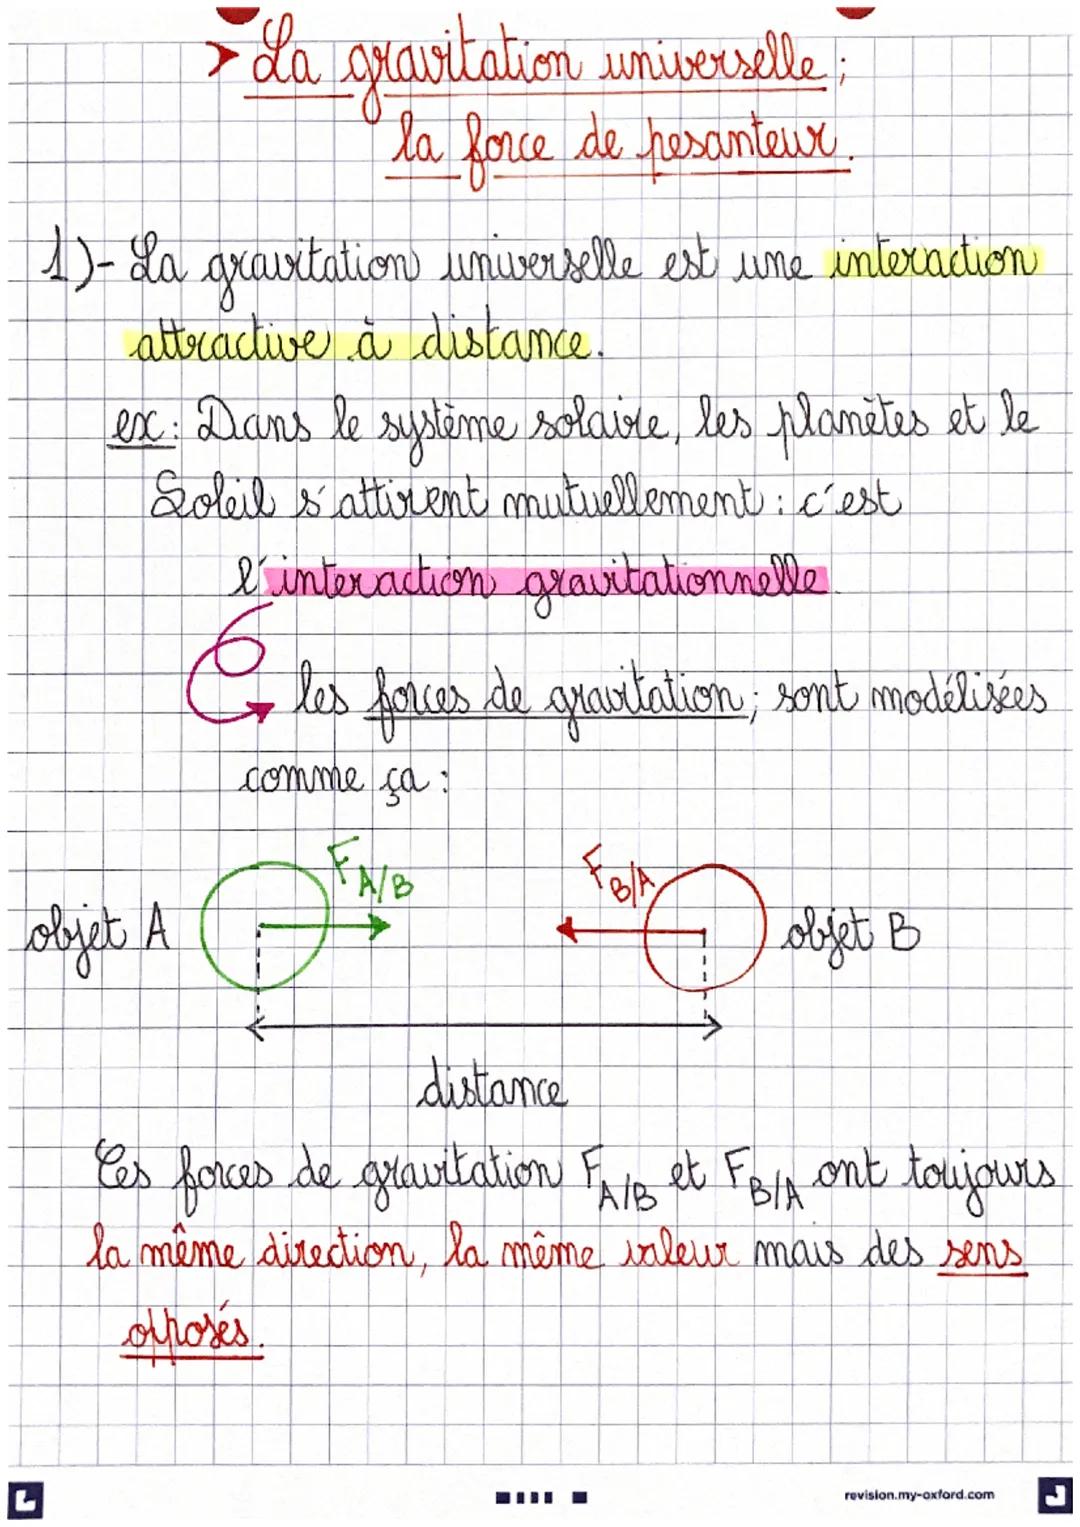 > La gravitation universelle ;
la force de pesanteur.
1)- La gravitation universelle est une interaction
attractive à distance.
ex : Dans le système solaire, les planètes et le
Soleil s'attirent mutuellement : c'est
l'interaction gravitationnelle.
les forces de gravitation ; sont modélisées
comme ça :
F A/B
F B/A
objet A
objet B
distance
Ces forces de gravitation F A/B et F B/A ont toujours
la même direction, la même valeur mais des sens
opposés.
revision.my-oxford.com